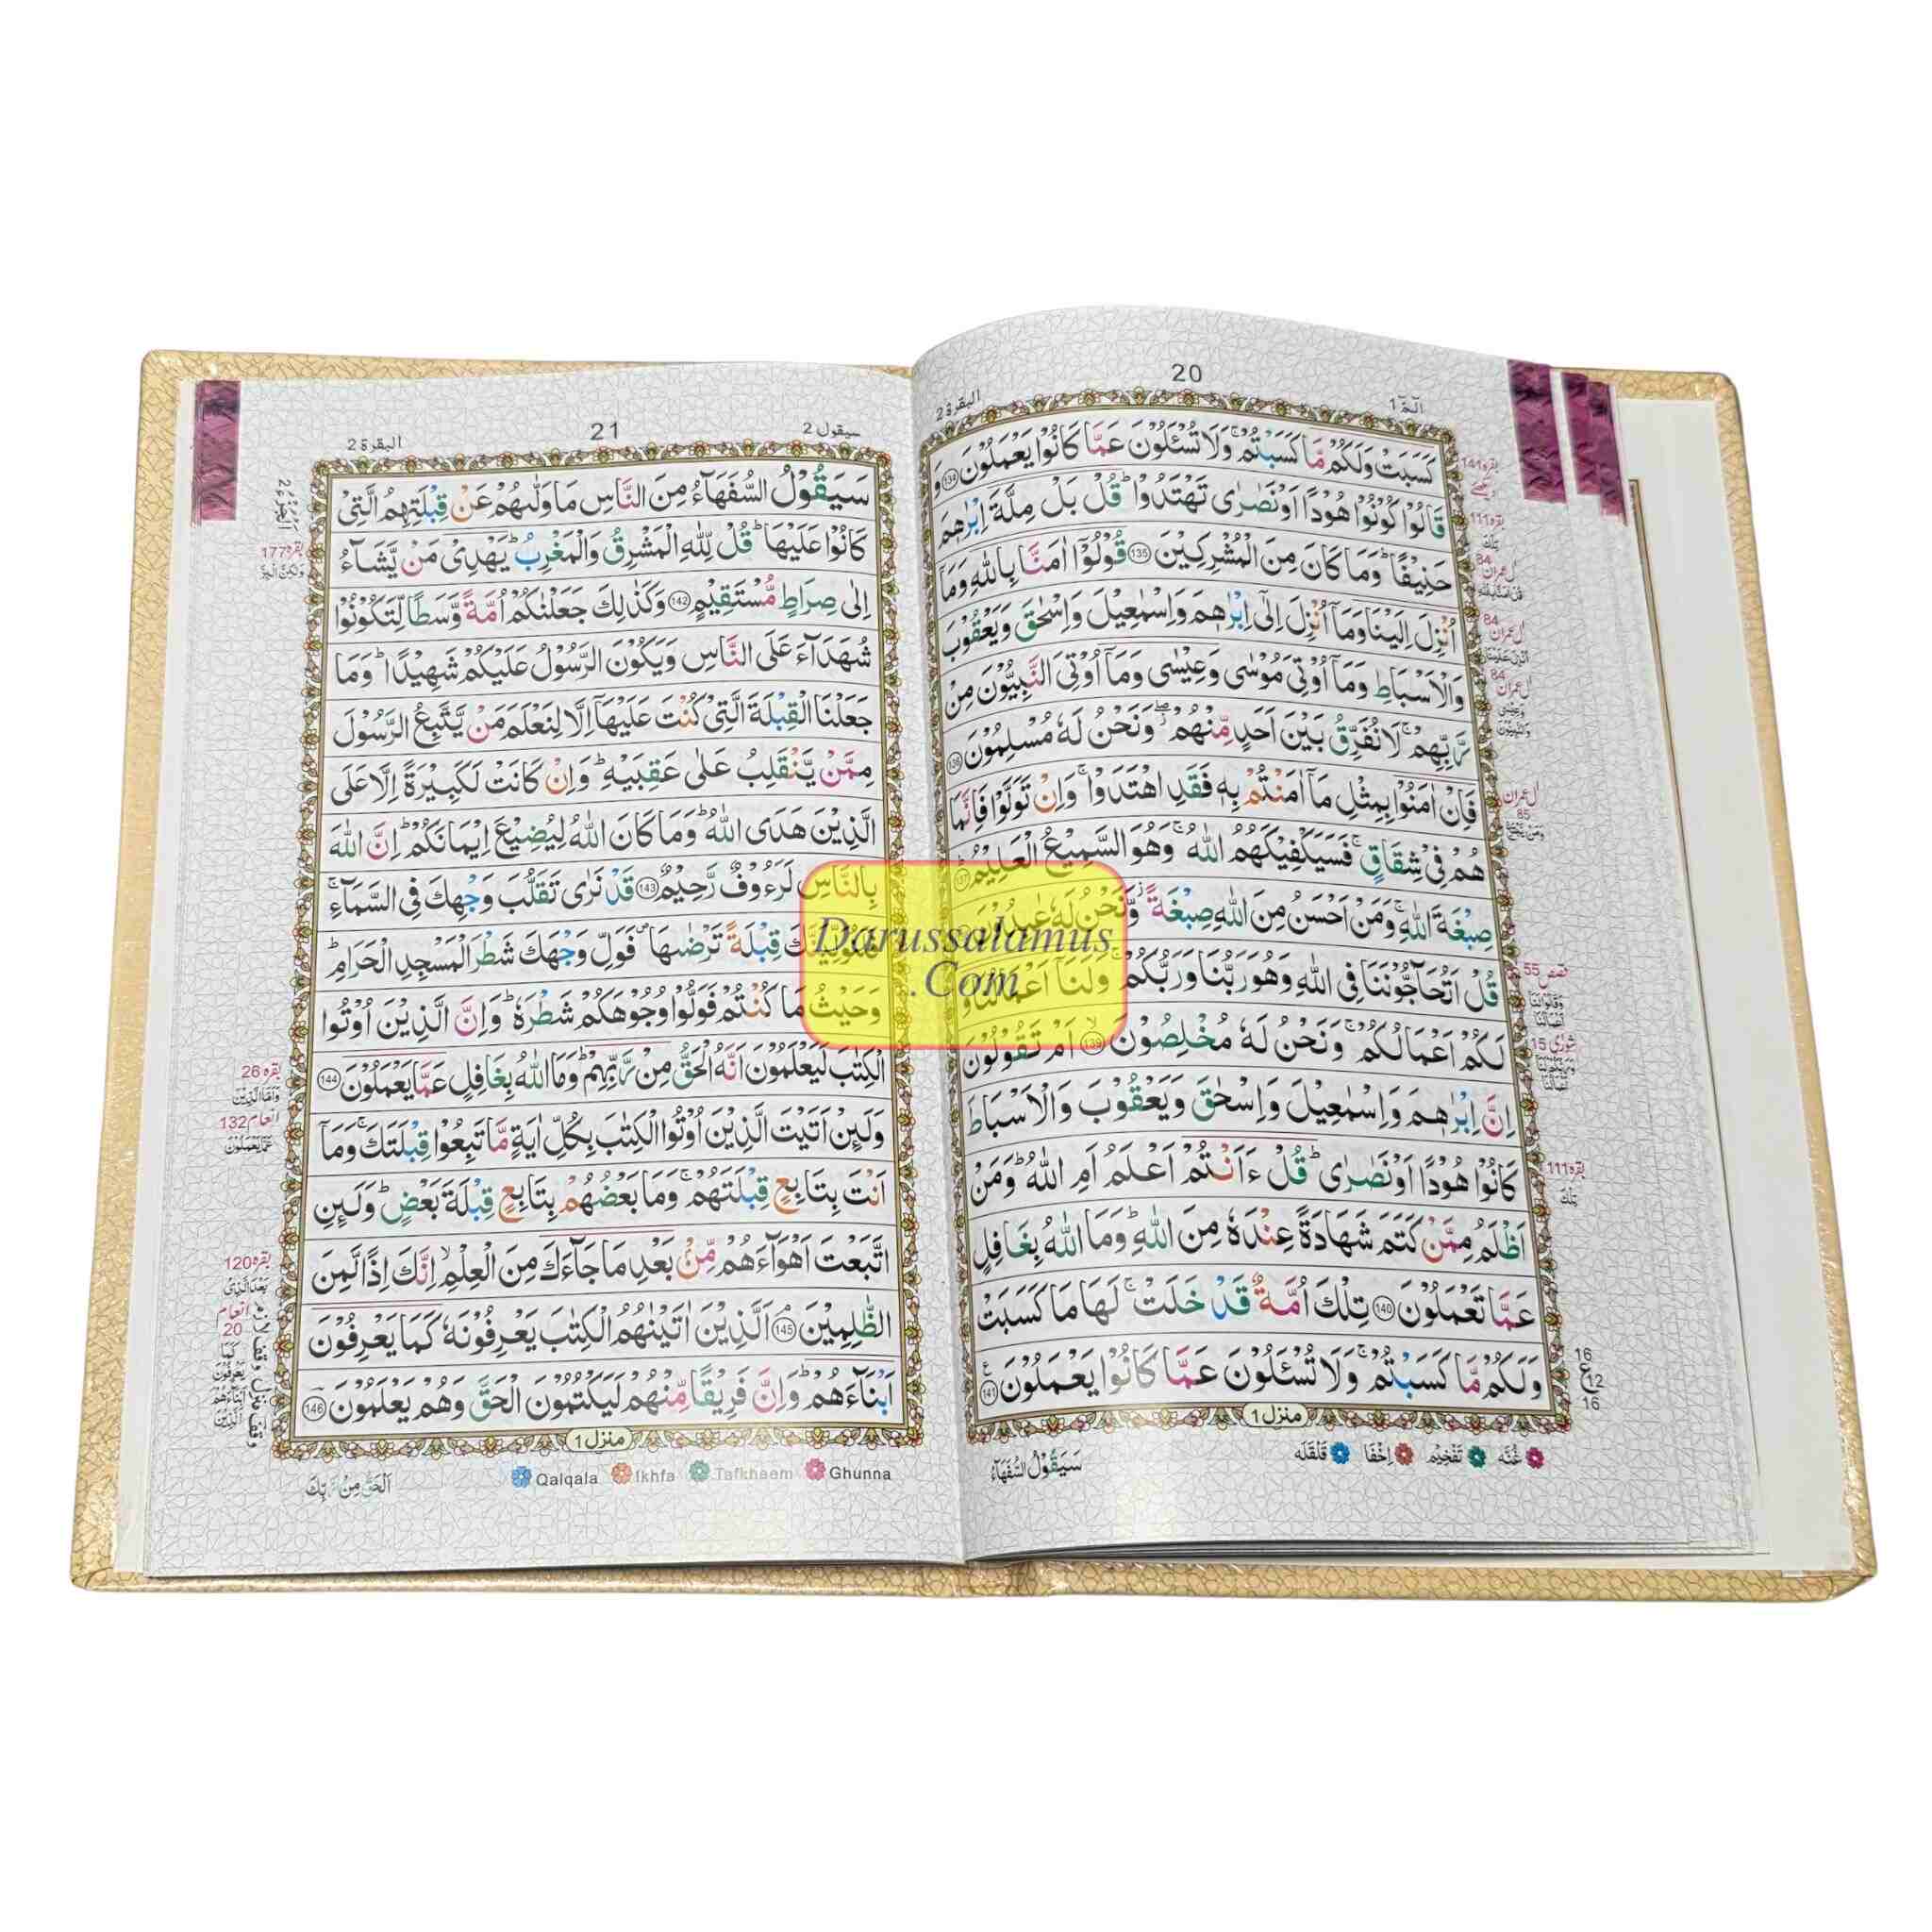 20
الٓمّٓ 1
البقرة 2
كَسَبَتْ وَلَكُمْ مَّا كَسَبْتُمْ ۚ وَلَا تُسْـَٔلُوْنَ عَمَّا كَانُوْا يَعْمَلُوْنَ 134 وَ
قَالُوْا كُوْنُوْا هُوْدًا اَوْ نَصٰرٰى تَهْتَدُوْا ؕ قُلْ بَلْ مِلَّةَ اِبْرٰهٖمَ
حَنِيْفًا ؕ وَمَا كَانَ مِنَ الْمُشْرِكِيْنَ 135 قُوْلُوْٓا اٰمَنَّا بِاللّٰهِ وَمَآ
اُنْزِلَ اِلَيْنَا وَمَآ اُنْزِلَ اِلٰٓى اِبْرٰهٖمَ وَاِسْمٰعِيْلَ وَاِسْحٰقَ وَيَعْقُوْبَ
وَالْاَسْبَاطِ وَمَآ اُوْتِيَ مُوْسٰى وَعِيْسٰى وَمَآ اُوْتِيَ النَّبِيُّوْنَ مِنْ
رَّبِّهِمْ ۚ لَا نُفَرِّقُ بَيْنَ اَحَدٍ مِّنْهُمْ ۖ وَنَحْنُ لَهٗ مُسْلِمُوْنَ 136
فَاِنْ اٰمَنُوْا بِمِثْلِ مَآ اٰمَنْتُمْ بِهٖ فَقَدِ اهْتَدَوْا ۚ وَاِنْ تَوَلَّوْا فَاِنَّمَا
هُمْ فِيْ شِقَاقٍ ۚ فَسَيَكْفِيْكَهُمُ اللّٰهُ ۚ وَهُوَ السَّمِيْعُ الْعَلِيْمُ 137
صِبْغَةَ اللّٰهِ ۚ وَمَنْ اَحْسَنُ مِنَ اللّٰهِ صِبْغَةً ۡ وَّنَحْنُ لَهٗ عٰبِدُوْنَ
قُلْ اَتُحَآجُّوْنَنَا فِي اللّٰهِ وَهُوَ رَبُّنَا وَرَبُّكُمْ ۚ وَلَنَآ اَعْمَالُنَا وَ
لَكُمْ اَعْمَالُكُمْ ۚ وَنَحْنُ لَهٗ مُخْلِصُوْنَ 139 اَمْ تَقُوْلُوْنَ
اِنَّ اِبْرٰهٖمَ وَاِسْمٰعِيْلَ وَاِسْحٰقَ وَيَعْقُوْبَ وَالْاَسْبَاطَ
كَانُوْا هُوْدًا اَوْ نَصٰرٰى ؕ قُلْ ءَاَنْتُمْ اَعْلَمُ اَمِ اللّٰهُ ؕ وَمَنْ
اَظْلَمُ مِمَّنْ كَتَمَ شَهَادَةً عِنْدَهٗ مِنَ اللّٰهِ ؕ وَمَا اللّٰهُ بِغَافِلٍ
عَمَّا تَعْمَلُوْنَ 140 تِلْكَ اُمَّةٌ قَدْ خَلَتْ ۚ لَهَا مَا كَسَبَتْ
وَلَكُمْ مَّا كَسَبْتُمْ ۚ وَلَا تُسْـَٔلُوْنَ عَمَّا كَانُوْا يَعْمَلُوْنَ 141
منزل 1
غُنَّه تَفْخِيْم اِخْفَا قَلْقَلَه
سَيَقُوْلُ السُّفَهَآءُ
بقره 141
بقره 111
تِلْكَ
84
اٰل عمران
84
اٰل عمران
84
اٰل عمران
اٰل عمران
85
قصص 55
شورى 15
بقره 111
تِلْكَ
16
ع 12
16
21
سيقول 2
البقرة 2
سَيَقُوْلُ السُّفَهَآءُ مِنَ النَّاسِ مَا وَلّٰىهُمْ عَنْ قِبْلَتِهِمُ الَّتِيْ
كَانُوْا عَلَيْهَا ؕ قُلْ لِّلّٰهِ الْمَشْرِقُ وَالْمَغْرِبُ ؕ يَهْدِيْ مَنْ يَّشَآءُ
اِلٰى صِرَاطٍ مُّسْتَقِيْمٍ 142 وَكَذٰلِكَ جَعَلْنٰكُمْ اُمَّةً وَّسَطًا لِّتَكُوْنُوْا
شُهَدَآءَ عَلَى النَّاسِ وَيَكُوْنَ الرَّسُوْلُ عَلَيْكُمْ شَهِيْدًا ؕ وَمَا
جَعَلْنَا الْقِبْلَةَ الَّتِيْ كُنْتَ عَلَيْهَآ اِلَّا لِنَعْلَمَ مَنْ يَّتَّبِعُ الرَّسُوْلَ
مِمَّنْ يَّنْقَلِبُ عَلٰى عَقِبَيْهِ ؕ وَاِنْ كَانَتْ لَكَبِيْرَةً اِلَّا عَلَى
الَّذِيْنَ هَدَى اللّٰهُ ؕ وَمَا كَانَ اللّٰهُ لِيُضِيْعَ اِيْمَانَكُمْ ؕ اِنَّ اللّٰهَ
بِالنَّاسِ لَرَءُوْفٌ رَّحِيْمٌ 143 قَدْ نَرٰى تَقَلُّبَ وَجْهِكَ فِي السَّمَآءِ ۚ
فَلَنُوَلِّيَنَّكَ قِبْلَةً تَرْضٰىهَا ۪ فَوَلِّ وَجْهَكَ شَطْرَ الْمَسْجِدِ الْحَرَامِ ؕ
وَحَيْثُ مَا كُنْتُمْ فَوَلُّوْا وُجُوْهَكُمْ شَطْرَهٗ ؕ وَاِنَّ الَّذِيْنَ اُوْتُوا
الْكِتٰبَ لَيَعْلَمُوْنَ اَنَّهُ الْحَقُّ مِنْ رَّبِّهِمْ ؕ وَمَا اللّٰهُ بِغَافِلٍ عَمَّا يَعْمَلُوْنَ 144
وَلَئِنْ اَتَيْتَ الَّذِيْنَ اُوْتُوا الْكِتٰبَ بِكُلِّ اٰيَةٍ مَّا تَبِعُوْا قِبْلَتَكَ ۚ وَمَآ
اَنْتَ بِتَابِعٍ قِبْلَتَهُمْ ۚ وَمَا بَعْضُهُمْ بِتَابِعٍ قِبْلَةَ بَعْضٍ ؕ وَلَئِنِ
اتَّبَعْتَ اَهْوَآءَهُمْ مِّنْۢ بَعْدِ مَا جَآءَكَ مِنَ الْعِلْمِ ۙ اِنَّكَ اِذًا لَّمِنَ
الظّٰلِمِيْنَ 145 اَلَّذِيْنَ اٰتَيْنٰهُمُ الْكِتٰبَ يَعْرِفُوْنَهٗ كَمَا يَعْرِفُوْنَ
اَبْنَآءَهُمْ ؕ وَاِنَّ فَرِيْقًا مِّنْهُمْ لَيَكْتُمُوْنَ الْحَقَّ وَهُمْ يَعْلَمُوْنَ 146
منزل 1
Qalqala Ikhfa Tafkhaem Ghunna
اَلْحَقُّ مِنْ رَّبِّكَ
الجزء 2
بقره 177
بقره 26
انعام 132
عَمَّا يَعْمَلُوْنَ
بقره 120
بَعْدَ الَّذِيْ
انعام
20
كَمَا
يَعْرِفُوْنَ
اَبْنَآءَهُمْ
اَلَّذِيْنَ
Darussalamus
.Com